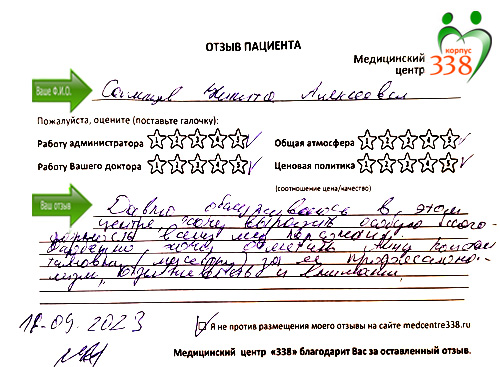 ОТЗЫВ ПАЦИЕНТА
корпус
Медицинский центр 338
Ваше Ф.И.О. Никита Алексеевич
Пожалуйста, оцените (поставьте галочку):
Работу администратора 1 2 3 4 5 Общая атмосфера 1 2 3 4 5
Работу Вашего доктора 1 2 3 4 5 Ценовая политика 1 2 3 4 5
(соотношение цена/качество)
Ваш отзыв Давно обслуживаюсь в этом
центре, хочу выразить особую благо-
дарность всему мед персоналу.
хочу отметить Анну Констан
тиновну (медсестру) за её профессиона-
лизм, и внимание.
18.09.2023
Я не против размещения моего отзыва на сайте medcentre338.ru
Медицинский центр «338» благодарит Вас за оставленный отзыв.